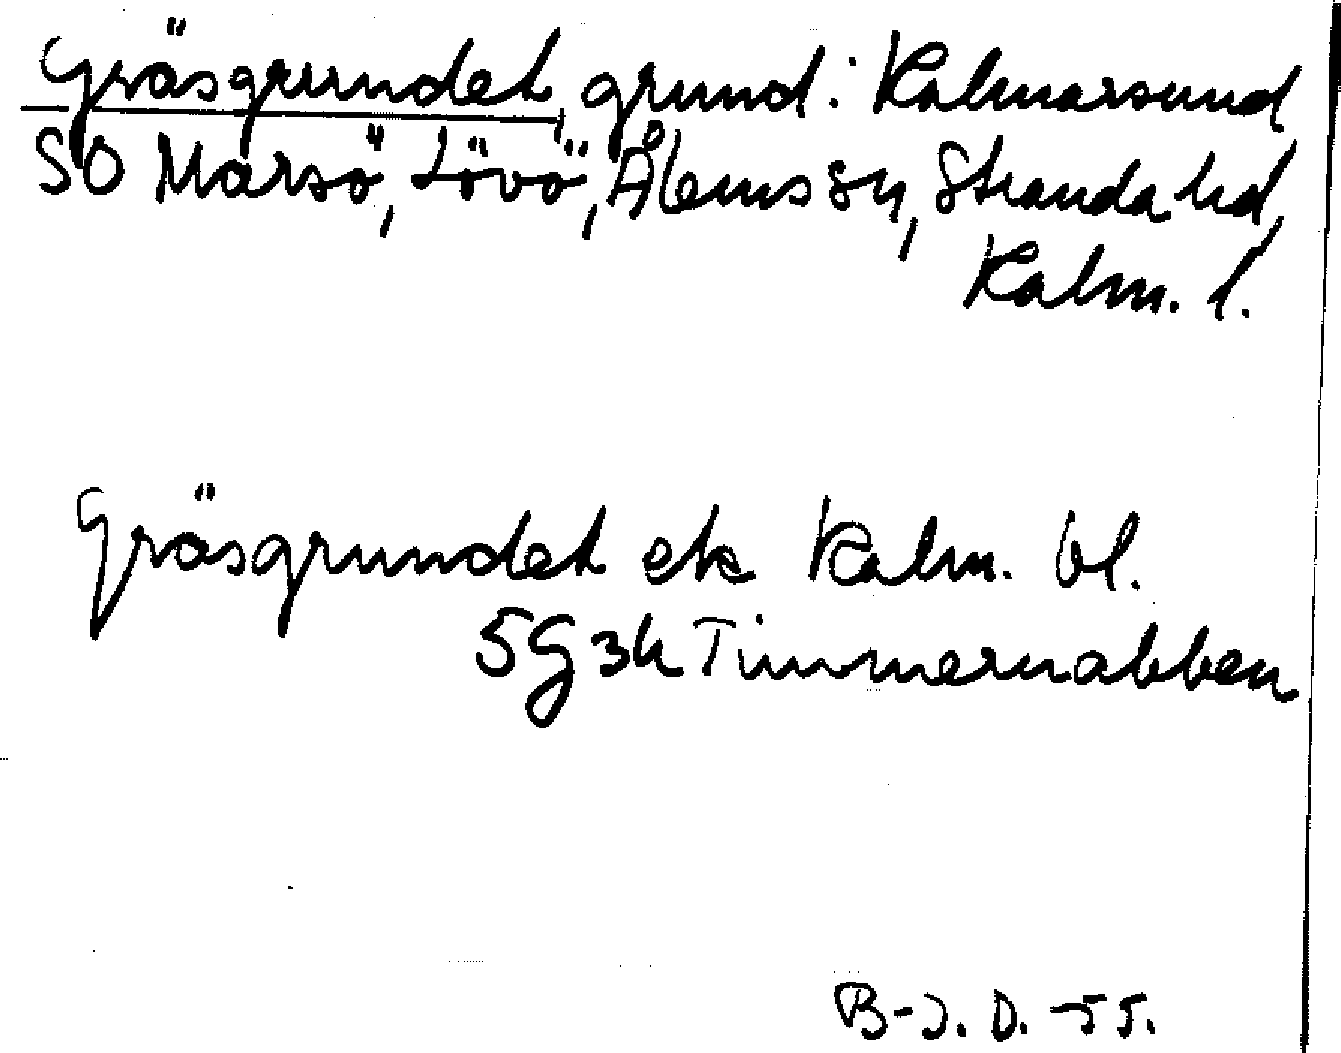 Gräsgrundet, grund i Kalmarsund
SO Marsö, Lövö, Ålems sn, Stranda hd,
Kalm. l.
Gräsgrundet ek Kalm. bl.
5G3h Timmernabben
B-J. D. -55.